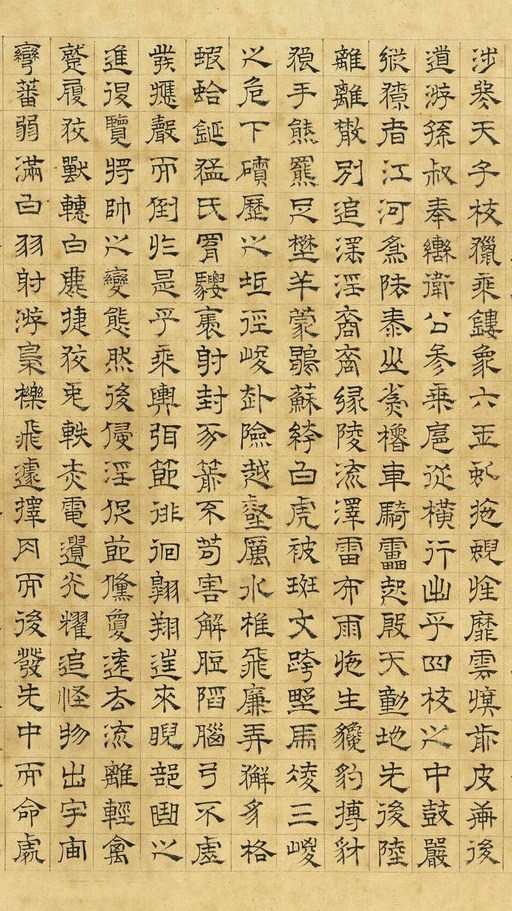 涉冬天子校獵乘鏤象六玉虬拖蜺旌靡雲旗前皮軒後
道游孫叔奉轡衛公參乘扈從橫行出乎四校之中鼓嚴
縱獠者江河為阹泰山為櫓車騎靁起殷天動地先後陸
離離散別追深淫裔裔緣陵流澤雷布雨施生豹搏豺
狼手熊羆足壄羊蒙鶡蘇絝白虎被斑文跨壄馬凌三嵕
之危下磧歷之坻徑峻赴險越壑厲水椎飛廉弄獬豸格
蝦蛤鋋猛氏羂騕褭射封豕箭不苟害解脰陷腦弓不虛
發應聲而倒於是乎乘輿弭節徘徊翱翔往來睨部曲之
進退覽將帥之變態然後侵淫促節儵夐遠去流離輕禽
蹵履狡獸轊白鹿捷狡兔軼赤電遺光耀追怪物出宇宙
彎蕃弱滿白羽射游梟櫟飛遽擇肉而後發先中而命處